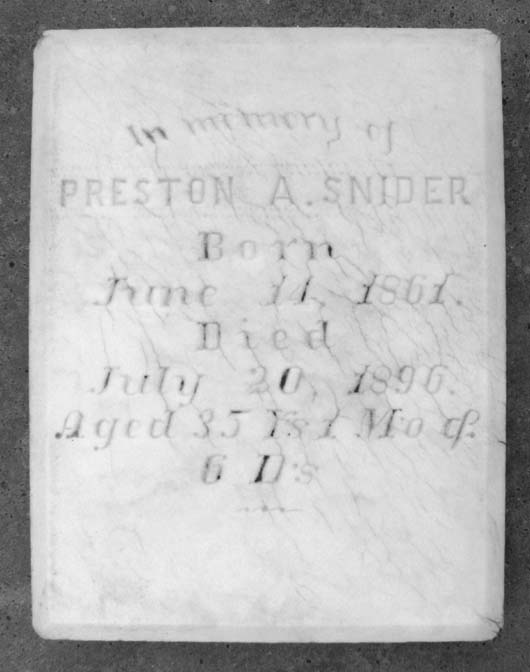 In memory of
PRESTON A. SNIDER
Born
June 14, 1861.
Died
July 20, 1896.
Aged 35 Ys 1 Mo &
6 D's